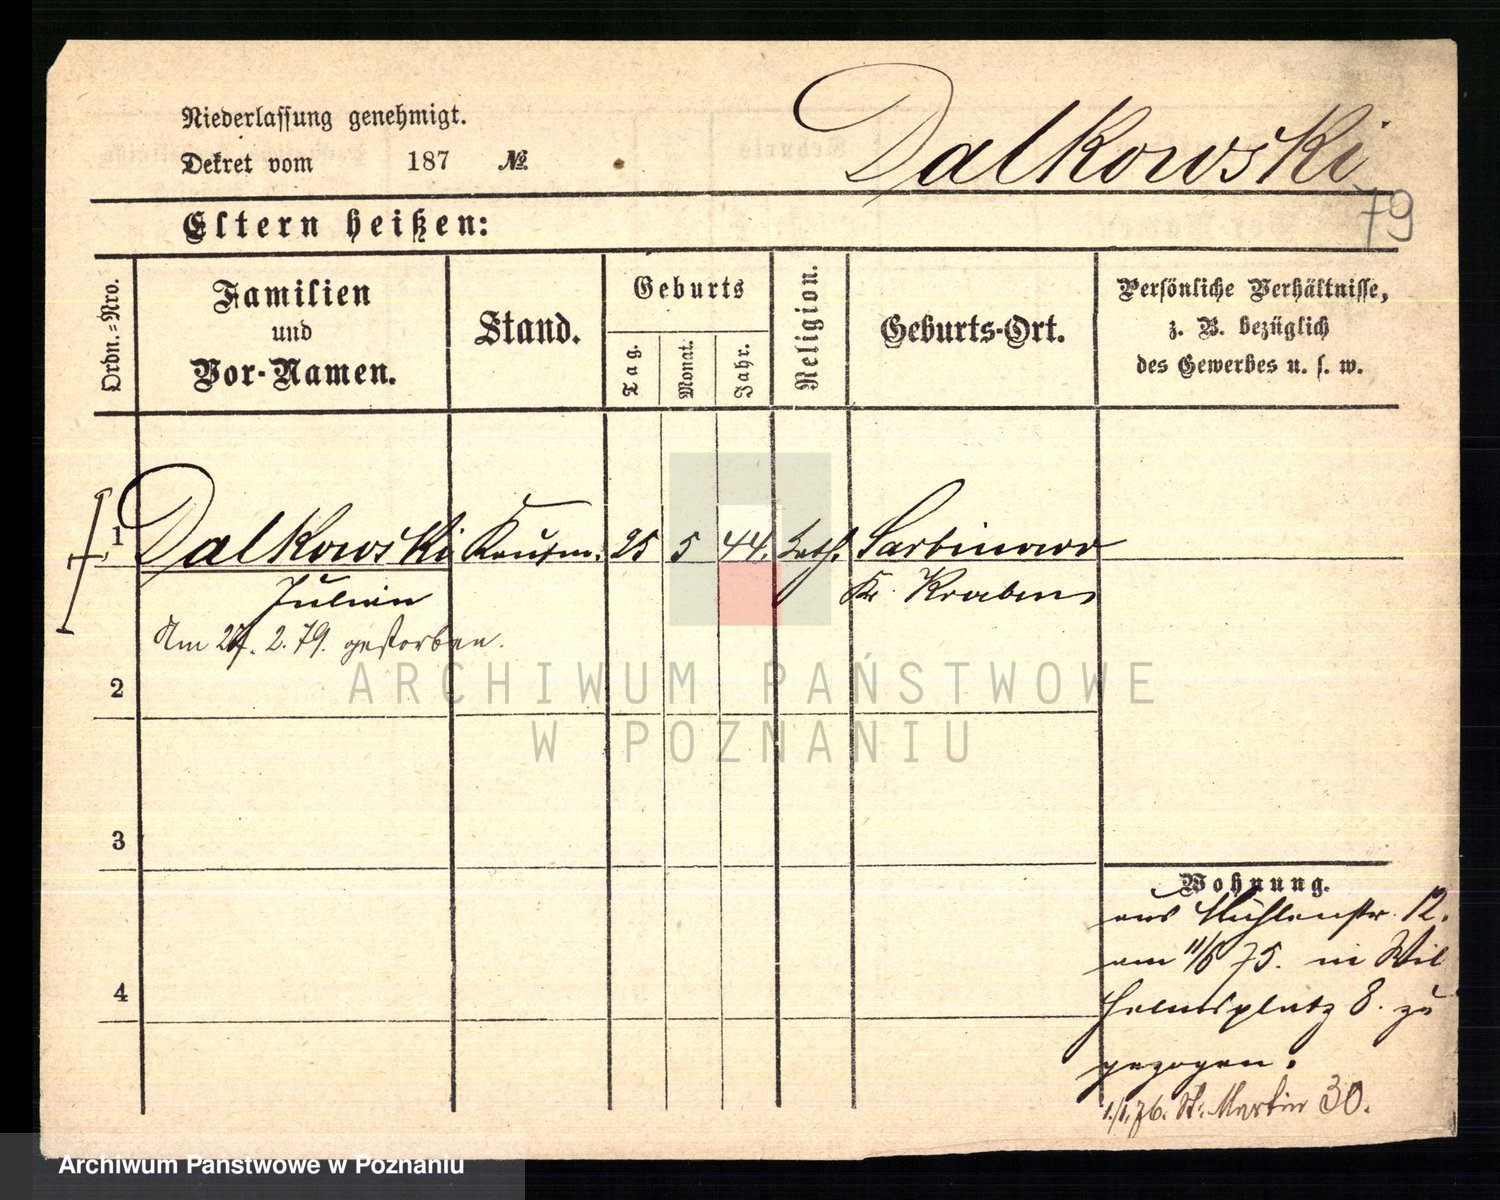 Niederlassung genehmigt.
Dekret vom 187 №
Dalkowski
79
Eltern heißen:
Ordn.-Nro.
Familien
und
Vor-Namen.
Stand.
Geburts
Tag.
Monat.
Jahr.
Religion.
Geburts-Ort.
Persönliche Verhältnisse,
z. B. bezüglich
des Gewerbes u. s. w.
1 Dalkowski Kaufm. 25 5 44. kath. Sarbinowo
Julian Kr. Kroeben
Am 27. 2. 79. gestorben.
2
3
4
Wohnung.
aus Mühlenstr. 12.
am 11/6 75. in Wil
helmsplatz 8. zu
gezogen.
1./1. 76. St. Martin 30.
ARCHIWUM PAŃSTWOWE
W POZNANIU
Archiwum Państwowe w Poznaniu